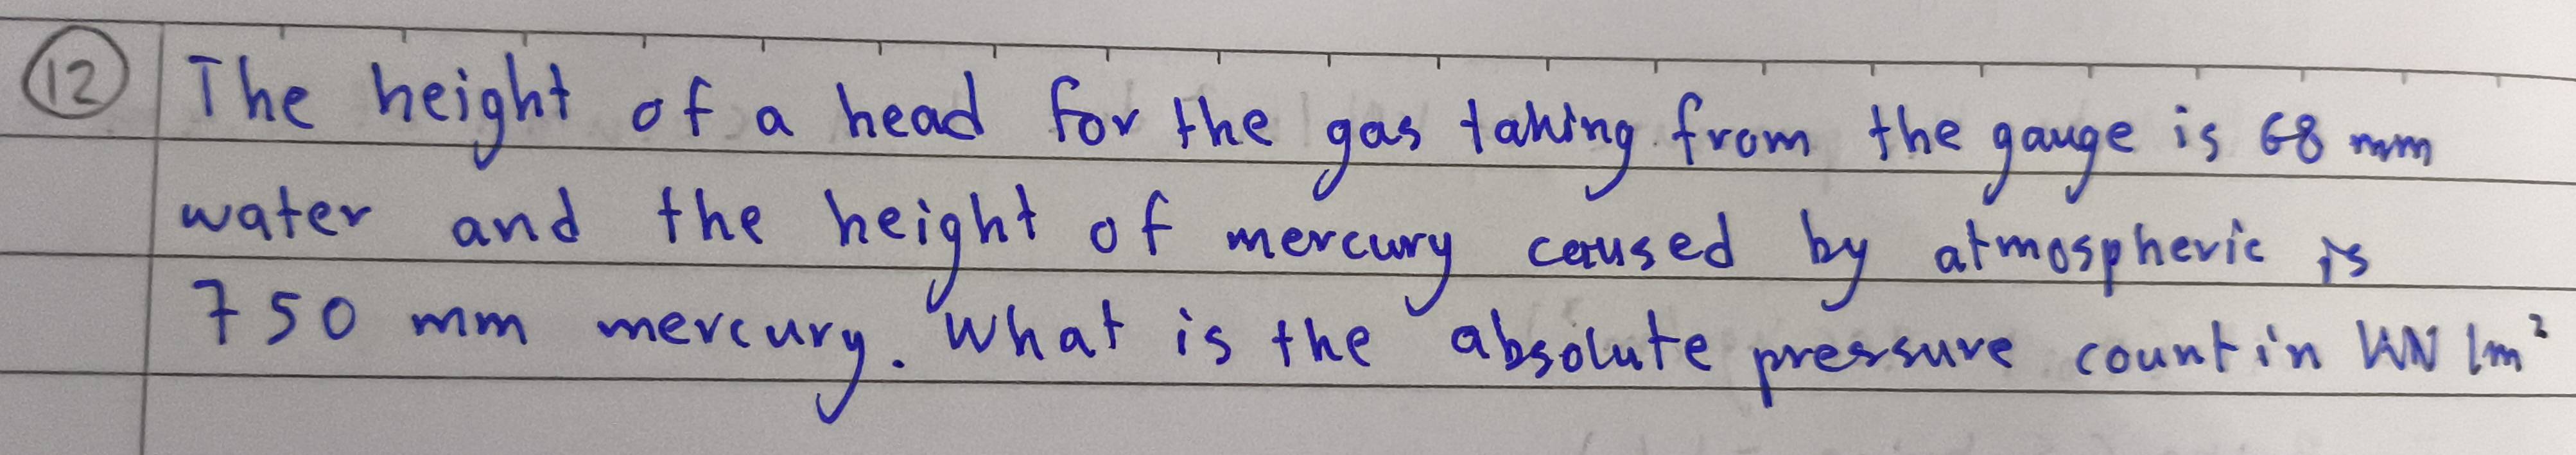 12 The height of a head for the gas taking from the gauge is 68 mm
water and the height of mercury caused by atmospheric is
750 mm mercury. What is the absolute pressure count in kN/m²